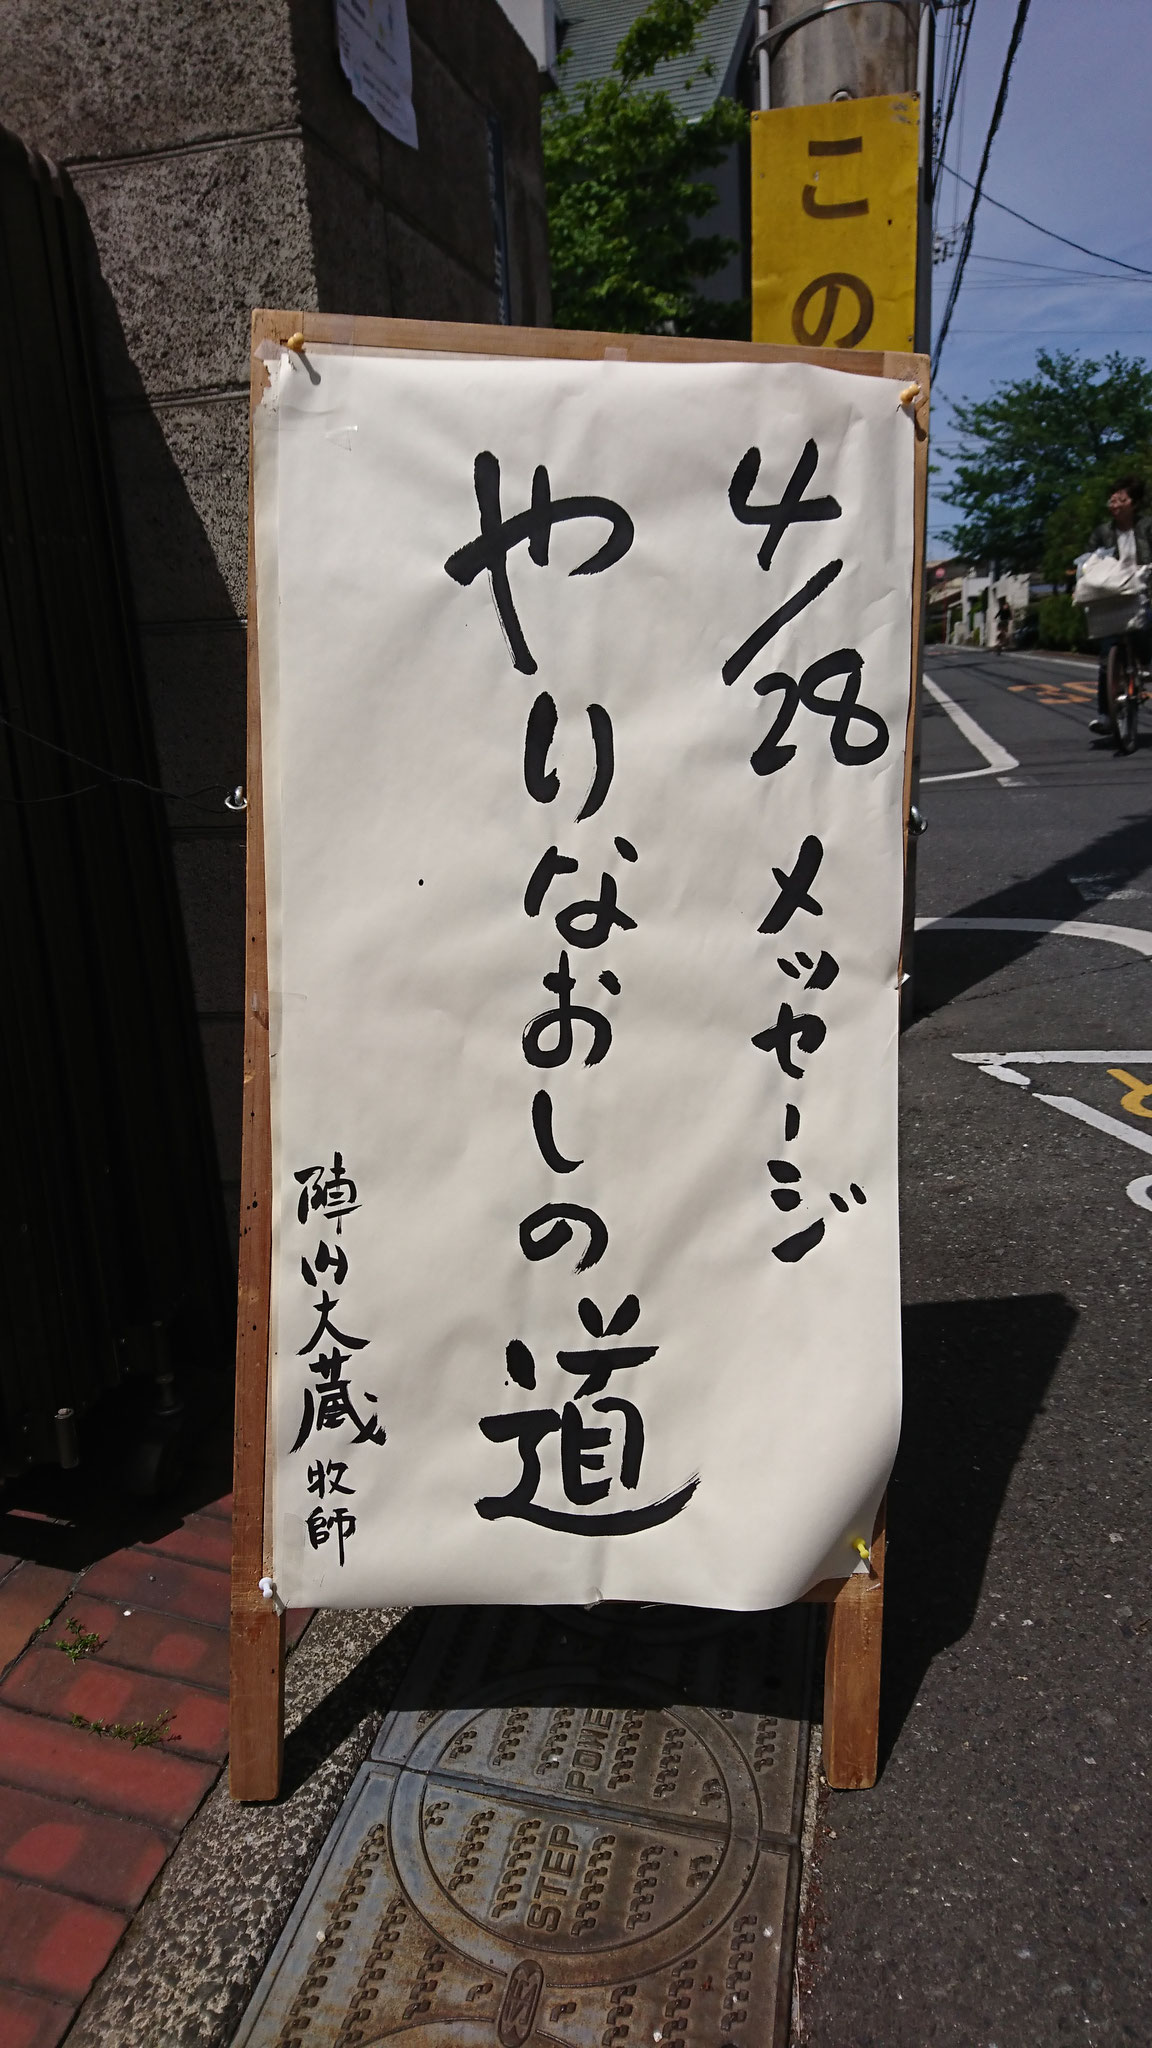 この
4/28 メッセージ
やりなおしの道
陣内大蔵 牧師
30
と
STEP
POWE